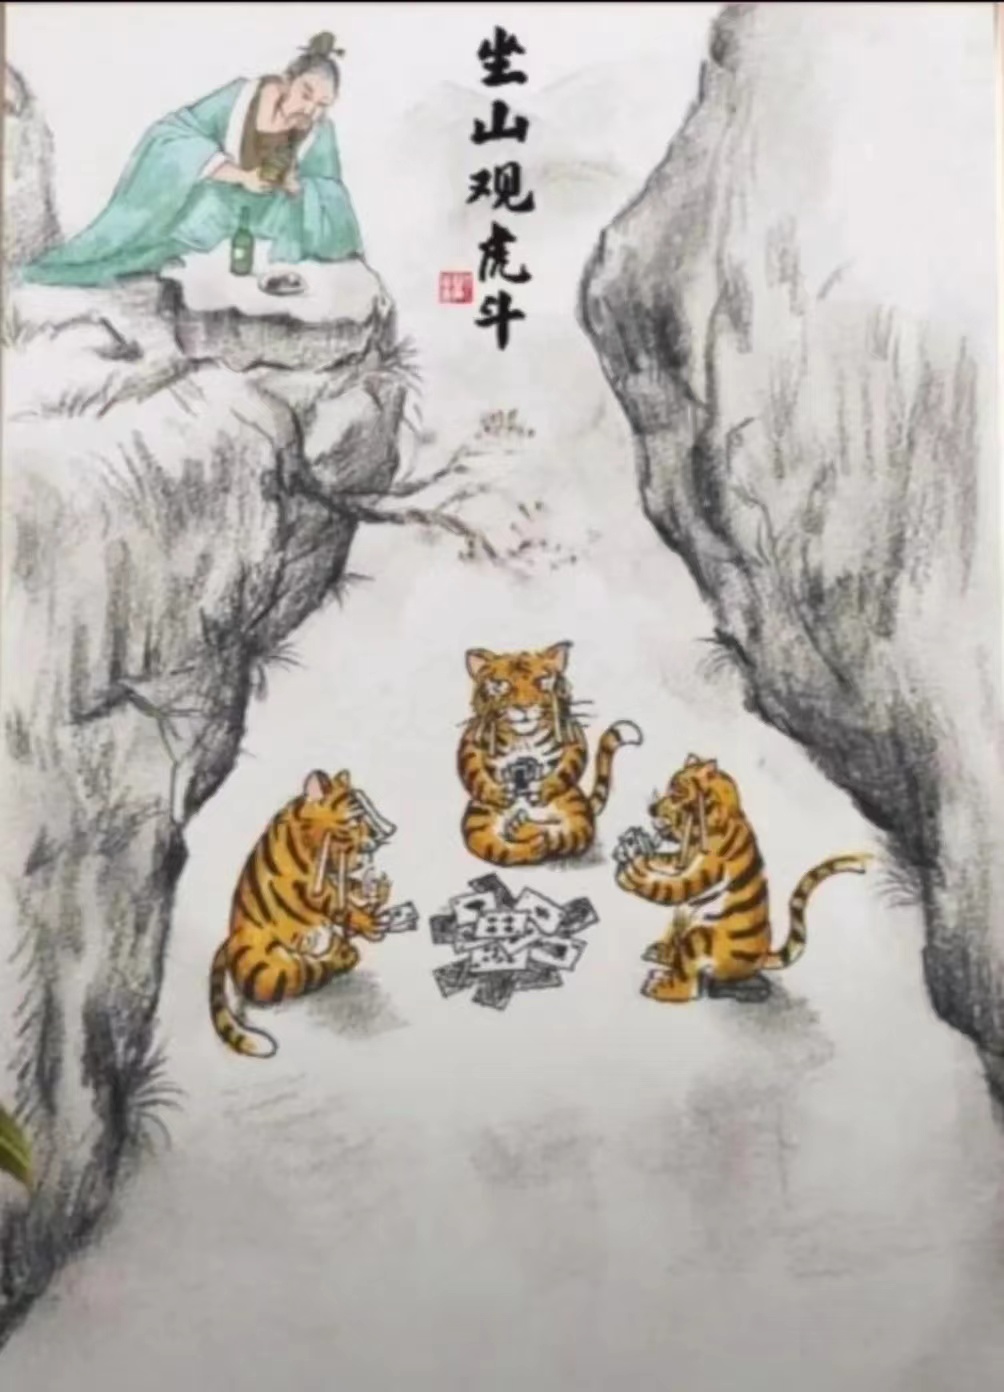 坐山观虎斗